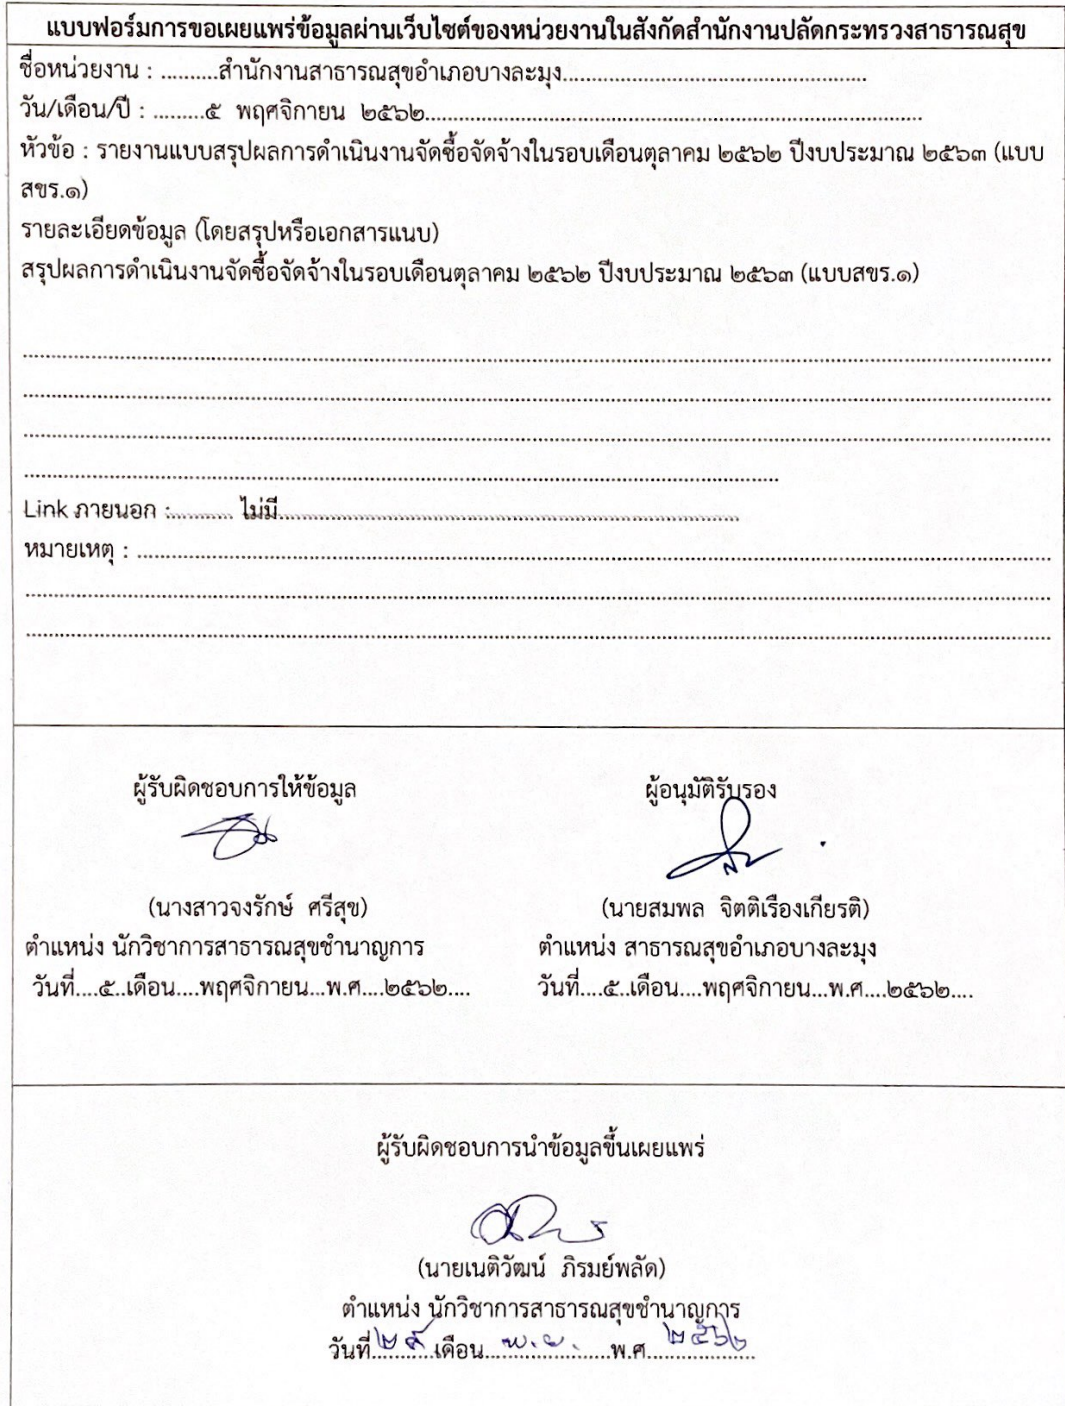 แบบฟอร์มการขอเผยแพร่ข้อมูลผ่านเว็บไซต์ของหน่วยงานในสังกัดสำนักงานปลัดกระทรวงสาธารณสุข
ชื่อหน่วยงาน : ..........สำนักงานสาธารณสุขอำเภอบางละมุง.....................................................
วัน/เดือน/ปี : .........๕ พฤศจิกายน ๒๕๖๒.......................................................................................
หัวข้อ : รายงานแบบสรุปผลการดำเนินงานจัดซื้อจัดจ้างในรอบเดือนตุลาคม ๒๕๖๒ ปีงบประมาณ ๒๕๖๓ (แบบ
สขร.๑)
รายละเอียดข้อมูล (โดยสรุปหรือเอกสารแนบ)
สรุปผลการดำเนินงานจัดซื้อจัดจ้างในรอบเดือนตุลาคม ๒๕๖๒ ปีงบประมาณ ๒๕๖๓ (แบบสขร.๑)
Link ภายนอก :........... ไม่มี................................................................................
หมายเหตุ : ................................................................................................................
ผู้รับผิดชอบการให้ข้อมูล
ผู้อนุมัติรับรอง
(นางสาวจงรักษ์ ศรีสุข)
(นายสมพล จิตติเรืองเกียรติ)
ตำแหน่ง นักวิชาการสาธารณสุขชำนาญการ
ตำแหน่ง สาธารณสุขอำเภอบางละมุง
วันที่....๕..เดือน....พฤศจิกายน...พ.ศ....๒๕๖๒....
วันที่....๕..เดือน....พฤศจิกายน...พ.ศ....๒๕๖๒....
ผู้รับผิดชอบการนำข้อมูลขึ้นเผยแพร่
(นายเนติวัฒน์ ภิรมย์พลัด)
ตำแหน่ง นักวิชาการสาธารณสุขชำนาญการ
วันที่ ๒๙ เดือน พ.ย. พ.ศ ๒๕๖๒